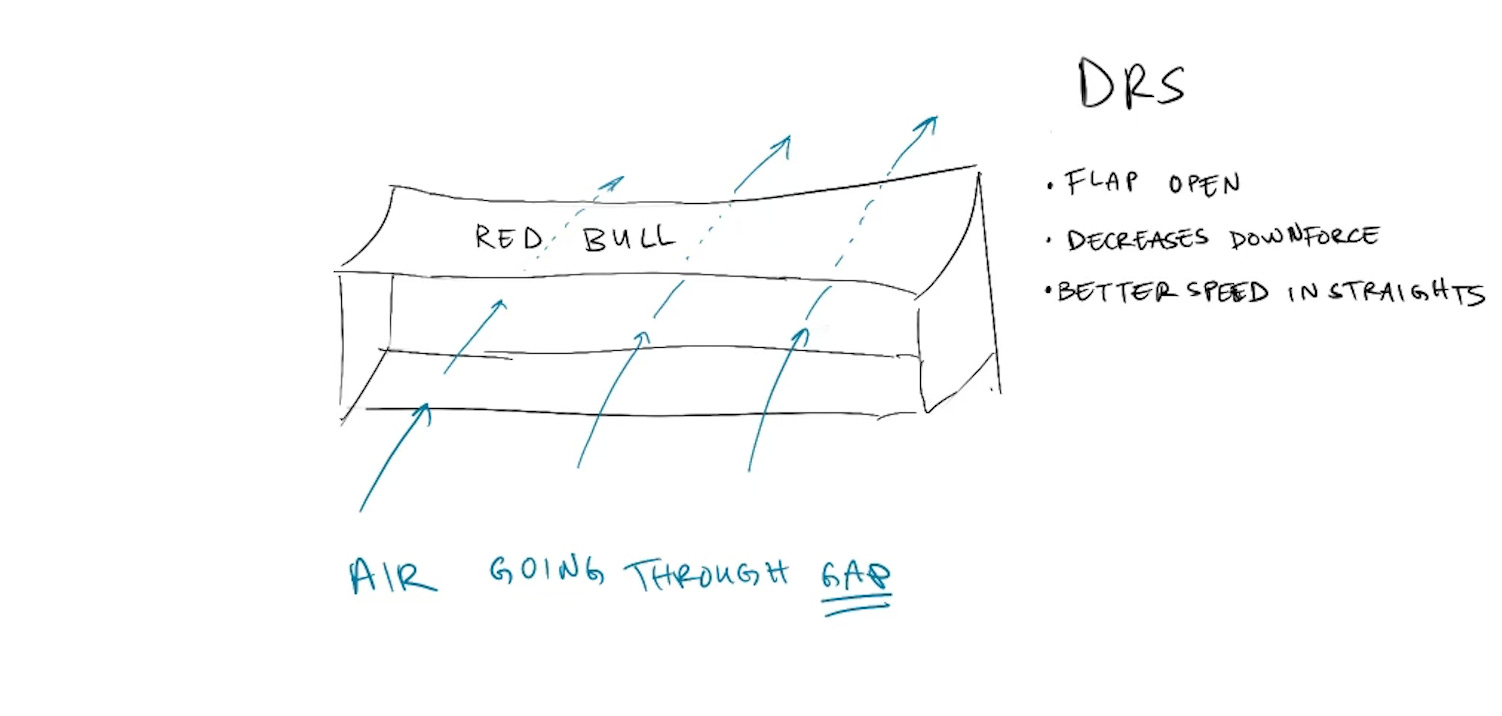 DRS
• FLAP OPEN
• DECREASES DOWNFORCE
• BETTER SPEED IN STRAIGHTS
RED BULL
AIR GOING THROUGH GAP